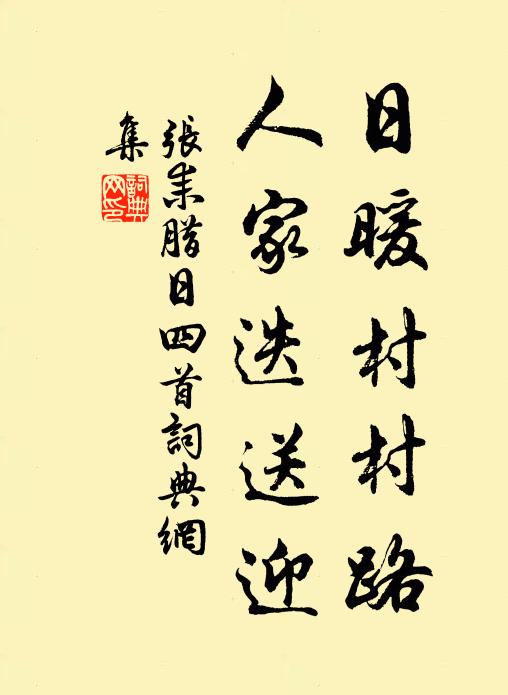 日暖村村路
人家迭送迎
張耒腊日四首詞典網
集
詞典
网印